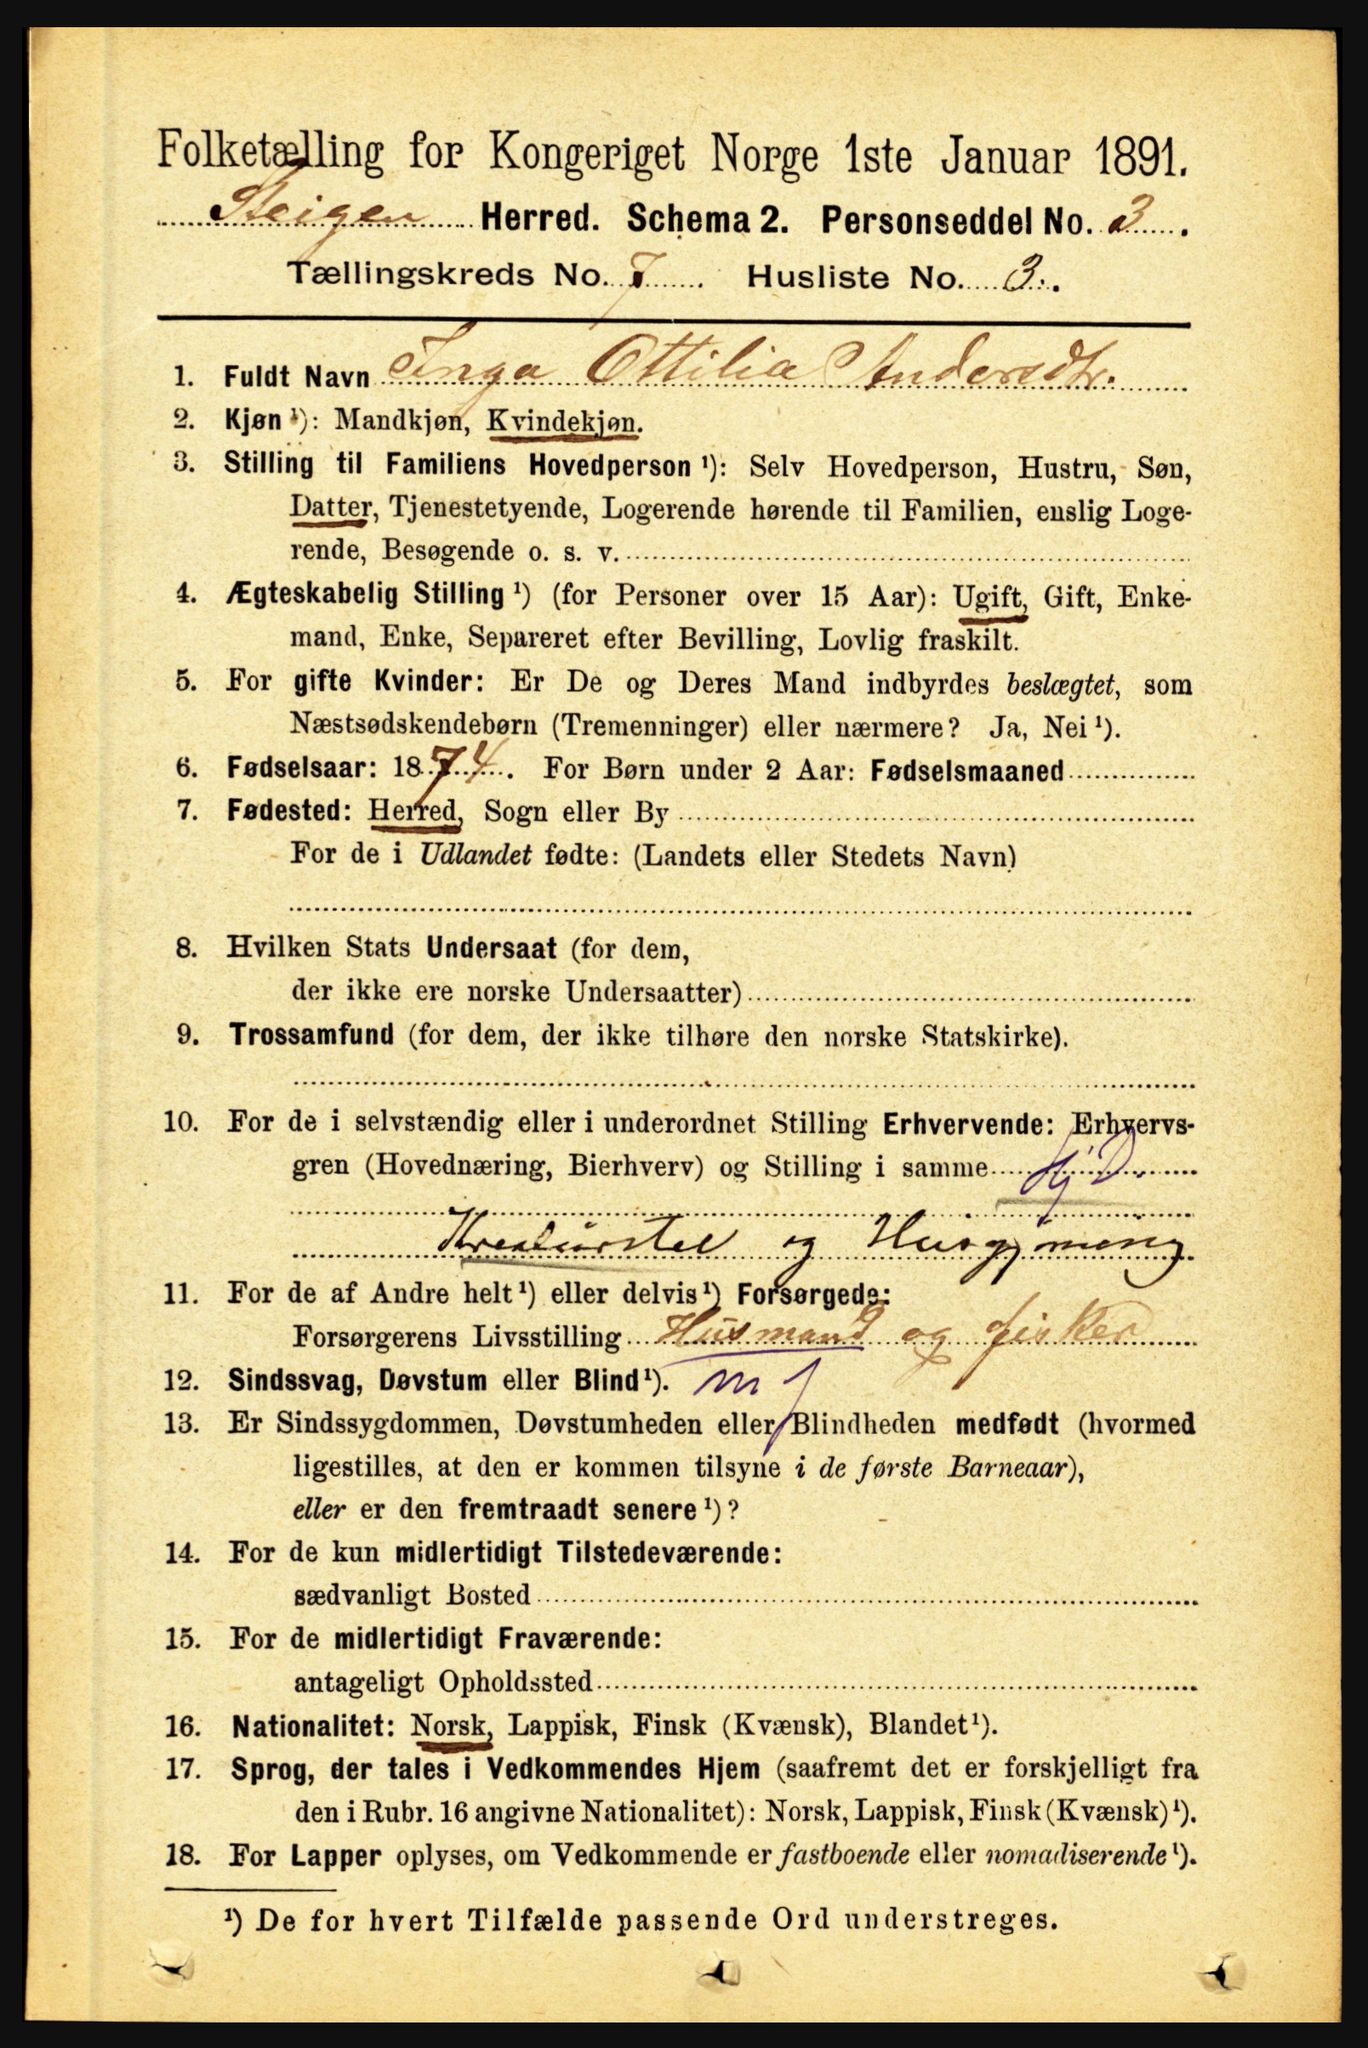 Folketælling for Kongeriget Norge 1ste Januar 1891.
Steigen Herred. Schema 2. Personseddel No. 3.
Tællingskreds No. 7 Husliste No. 3.
1. Fuldt Navn Inga Ottilia Andersdtr.
2. Kjøn ¹): Mandkjøn, Kvindekjøn.
3. Stilling til Familiens Hovedperson ¹): Selv Hovedperson, Hustru, Søn,
Datter, Tjenestetyende, Logerende hørende til Familien, enslig Loge-
rende, Besøgende o. s. v.
4. Ægteskabelig Stilling ¹) (for Personer over 15 Aar): Ugift, Gift, Enke-
mand, Enke, Separeret efter Bevilling, Lovlig fraskilt.
5. For gifte Kvinder: Er De og Deres Mand indbyrdes beslægtet, som
Næstsødskendebørn (Tremenninger) eller nærmere? Ja, Nei ¹).
6. Fødselsaar: 1874. For Børn under 2 Aar: Fødselsmaaned
7. Fødested: Herred, Sogn eller By
For de i Udlandet fødte: (Landets eller Stedets Navn)
8. Hvilken Stats Undersaat (for dem,
der ikke ere norske Undersaatter)
9. Trossamfund (for dem, der ikke tilhøre den norske Statskirke).
10. For de i selvstændig eller i underordnet Stilling Erhvervende: Erhvervs-
gren (Hovednæring, Bierhverv) og Stilling i samme Hj D.
Kreaturstel og Husgjerning
11. For de af Andre helt ¹) eller delvis ¹) Forsørgede:
Forsørgerens Livsstilling Husmand og fisker
12. Sindssvag, Døvstum eller Blind ¹). m f
13. Er Sindssygdommen, Døvstumheden eller Blindheden medfødt (hvormed
ligestilles, at den er kommen tilsyne i de første Barneaar),
eller er den fremtraadt senere ¹)?
14. For de kun midlertidigt Tilstedeværende:
sædvanligt Bosted
15. For de midlertidigt Fraværende:
antageligt Opholdssted
16. Nationalitet: Norsk, Lappisk, Finsk (Kvænsk), Blandet ¹).
17. Sprog, der tales i Vedkommendes Hjem (saafremt det er forskjelligt fra
den i Rubr. 16 angivne Nationalitet): Norsk, Lappisk, Finsk (Kvænsk) ¹).
18. For Lapper oplyses, om Vedkommende er fastboende eller nomadiserende ¹).
¹) De for hvert Tilfælde passende Ord understreges.